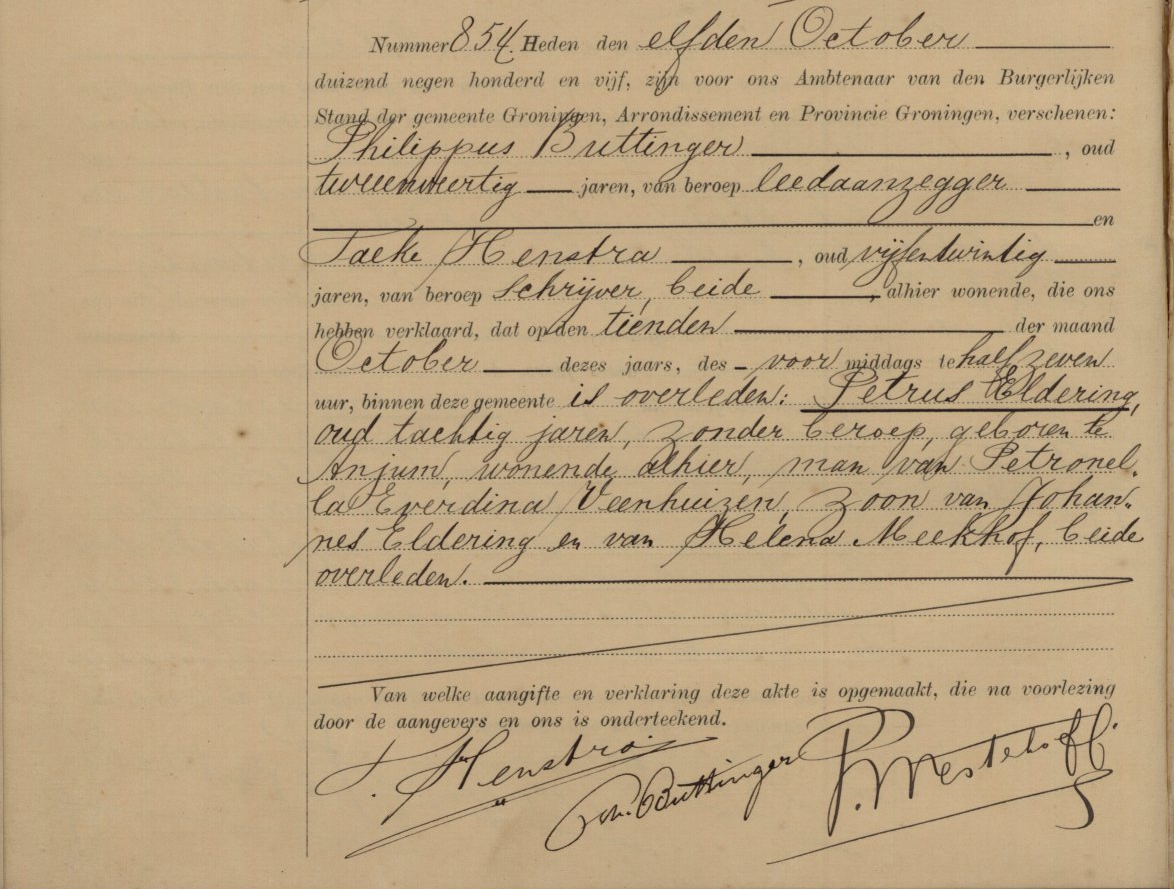 Nummer 854. Heden den elfden October
duizend negen honderd en vijf, zijn voor ons Ambtenaar van den Burgerlijken
Stand der gemeente Groningen, Arrondissement en Provincie Groningen, verschenen:
Philippus Buttinger, oud
tweeenveertig jaren, van beroep leedaanzegger
en
Taeke Henstra, oud vijfentwintig
jaren, van beroep Schrijver, beide, alhier wonende, die ons
hebben verklaard, dat op den tienden der maand
October dezes jaars, des voor middags te half zeven
uur, binnen deze gemeente is overleden: Petrus Eldering,
oud tachtig jaren, zonder beroep, geboren te
Anjum, wonende alhier, man van Petronel-
la Everdina Veenhuizen, zoon van Johan-
nes Eldering en van Helena Meekhof, beide
overleden.
Van welke aangifte en verklaring deze akte is opgemaakt, die na voorlezing
door de aangevers en ons is onderteekend.
T. Henstra
Ph. Buttinger
P. Westehoff